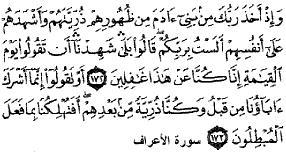 وَإِذْ أَخَذَ رَبُّكَ مِنۢ بَنِىٓ ءَادَمَ مِن ظُهُورِهِمْ ذُرِّيَّتَهُمْ وَأَشْهَدَهُمْ
عَلَىٰٓ أَنفُسِهِمْ أَلَسْتُ بِرَبِّكُمْ ۖ قَالُوا۟ بَلَىٰ ۛ شَهِدْنَآ ۛ أَن تَقُولُوا۟ يَوْمَ
ٱلْقِيَـٰمَةِ إِنَّا كُنَّا عَنْ هَـٰذَا غَـٰفِلِينَ ١٧٢ أَوْ تَقُولُوٓا۟ إِنَّمَآ أَشْرَكَ
ءَابَآؤُنَا مِن قَبْلُ وَكُنَّا ذُرِّيَّةً مِّنۢ بَعْدِهِمْ ۖ أَفَتُهْلِكُنَا بِمَا فَعَلَ
ٱلْمُبْطِلُونَ ١٧٣ سورة الأعراف